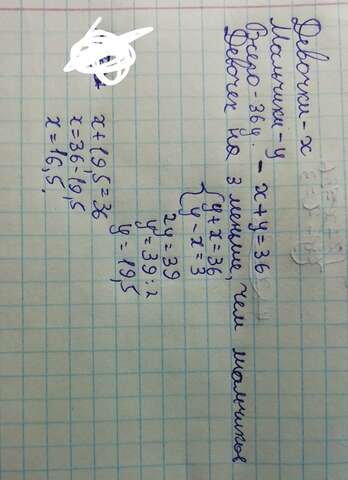 Девочки - x
Мальчики - y
Всего - 36 у. - x+y=36
Девочек на 3 меньше, чем мальчиков
{y+x=36
y-x=3
2y=39
y=39:2
y=19,5
x+19,5=36
x=36-19,5
x=16,5.